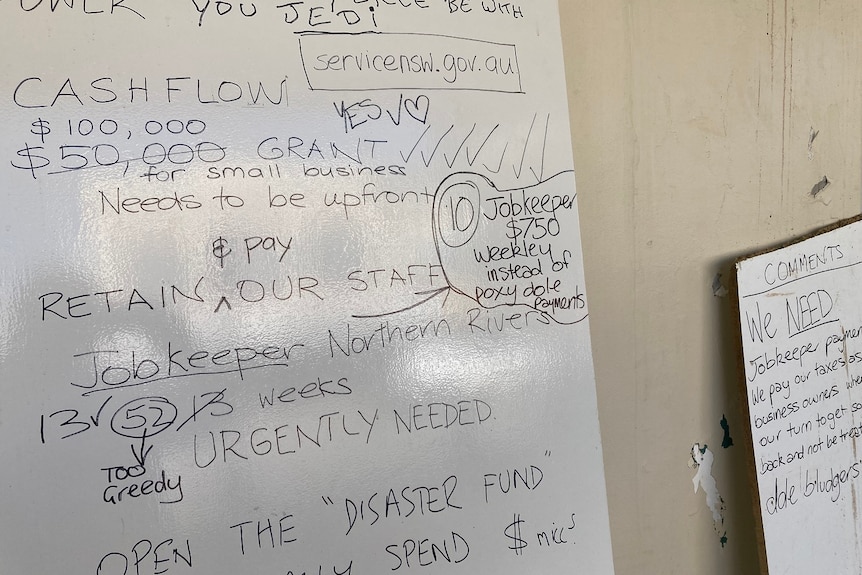 POWER YOU JEDi BE WITH
servicensw.gov.au
CASHFLOW
YES
$100,000
$50,000 GRANT
for small business
Needs to be upfront
& pay
RETAIN ^ OUR STAFF
10 Jobkeeper
$750
weekley
instead of
poxy dole
payments
Jobkeeper Northern Rivers
13 52 13 weeks
Too
Greedy
URGENTLY NEEDED.
OPEN THE "DISASTER FUND"
SPEND $ mills
COMMENTS
WE NEED
Jobkeeper
We pay our taxes as
business owners
our turn to get
back and not be
dole bludgers